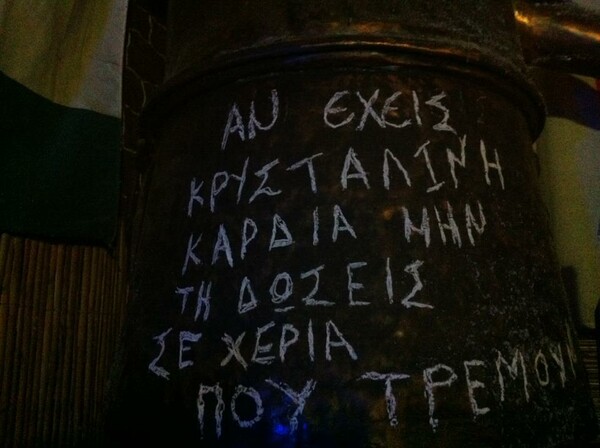 ΑΝ ΕΧΕΙΣ
ΚΡΥΣΤΑΛΙΝΗ
ΚΑΡΔΙΑ ΜΗΝ
ΤΗ ΔΩΣΕΙΣ
ΣΕ ΧΕΡΙΑ
ΠΟΥ ΤΡΕΜΟΥΝ